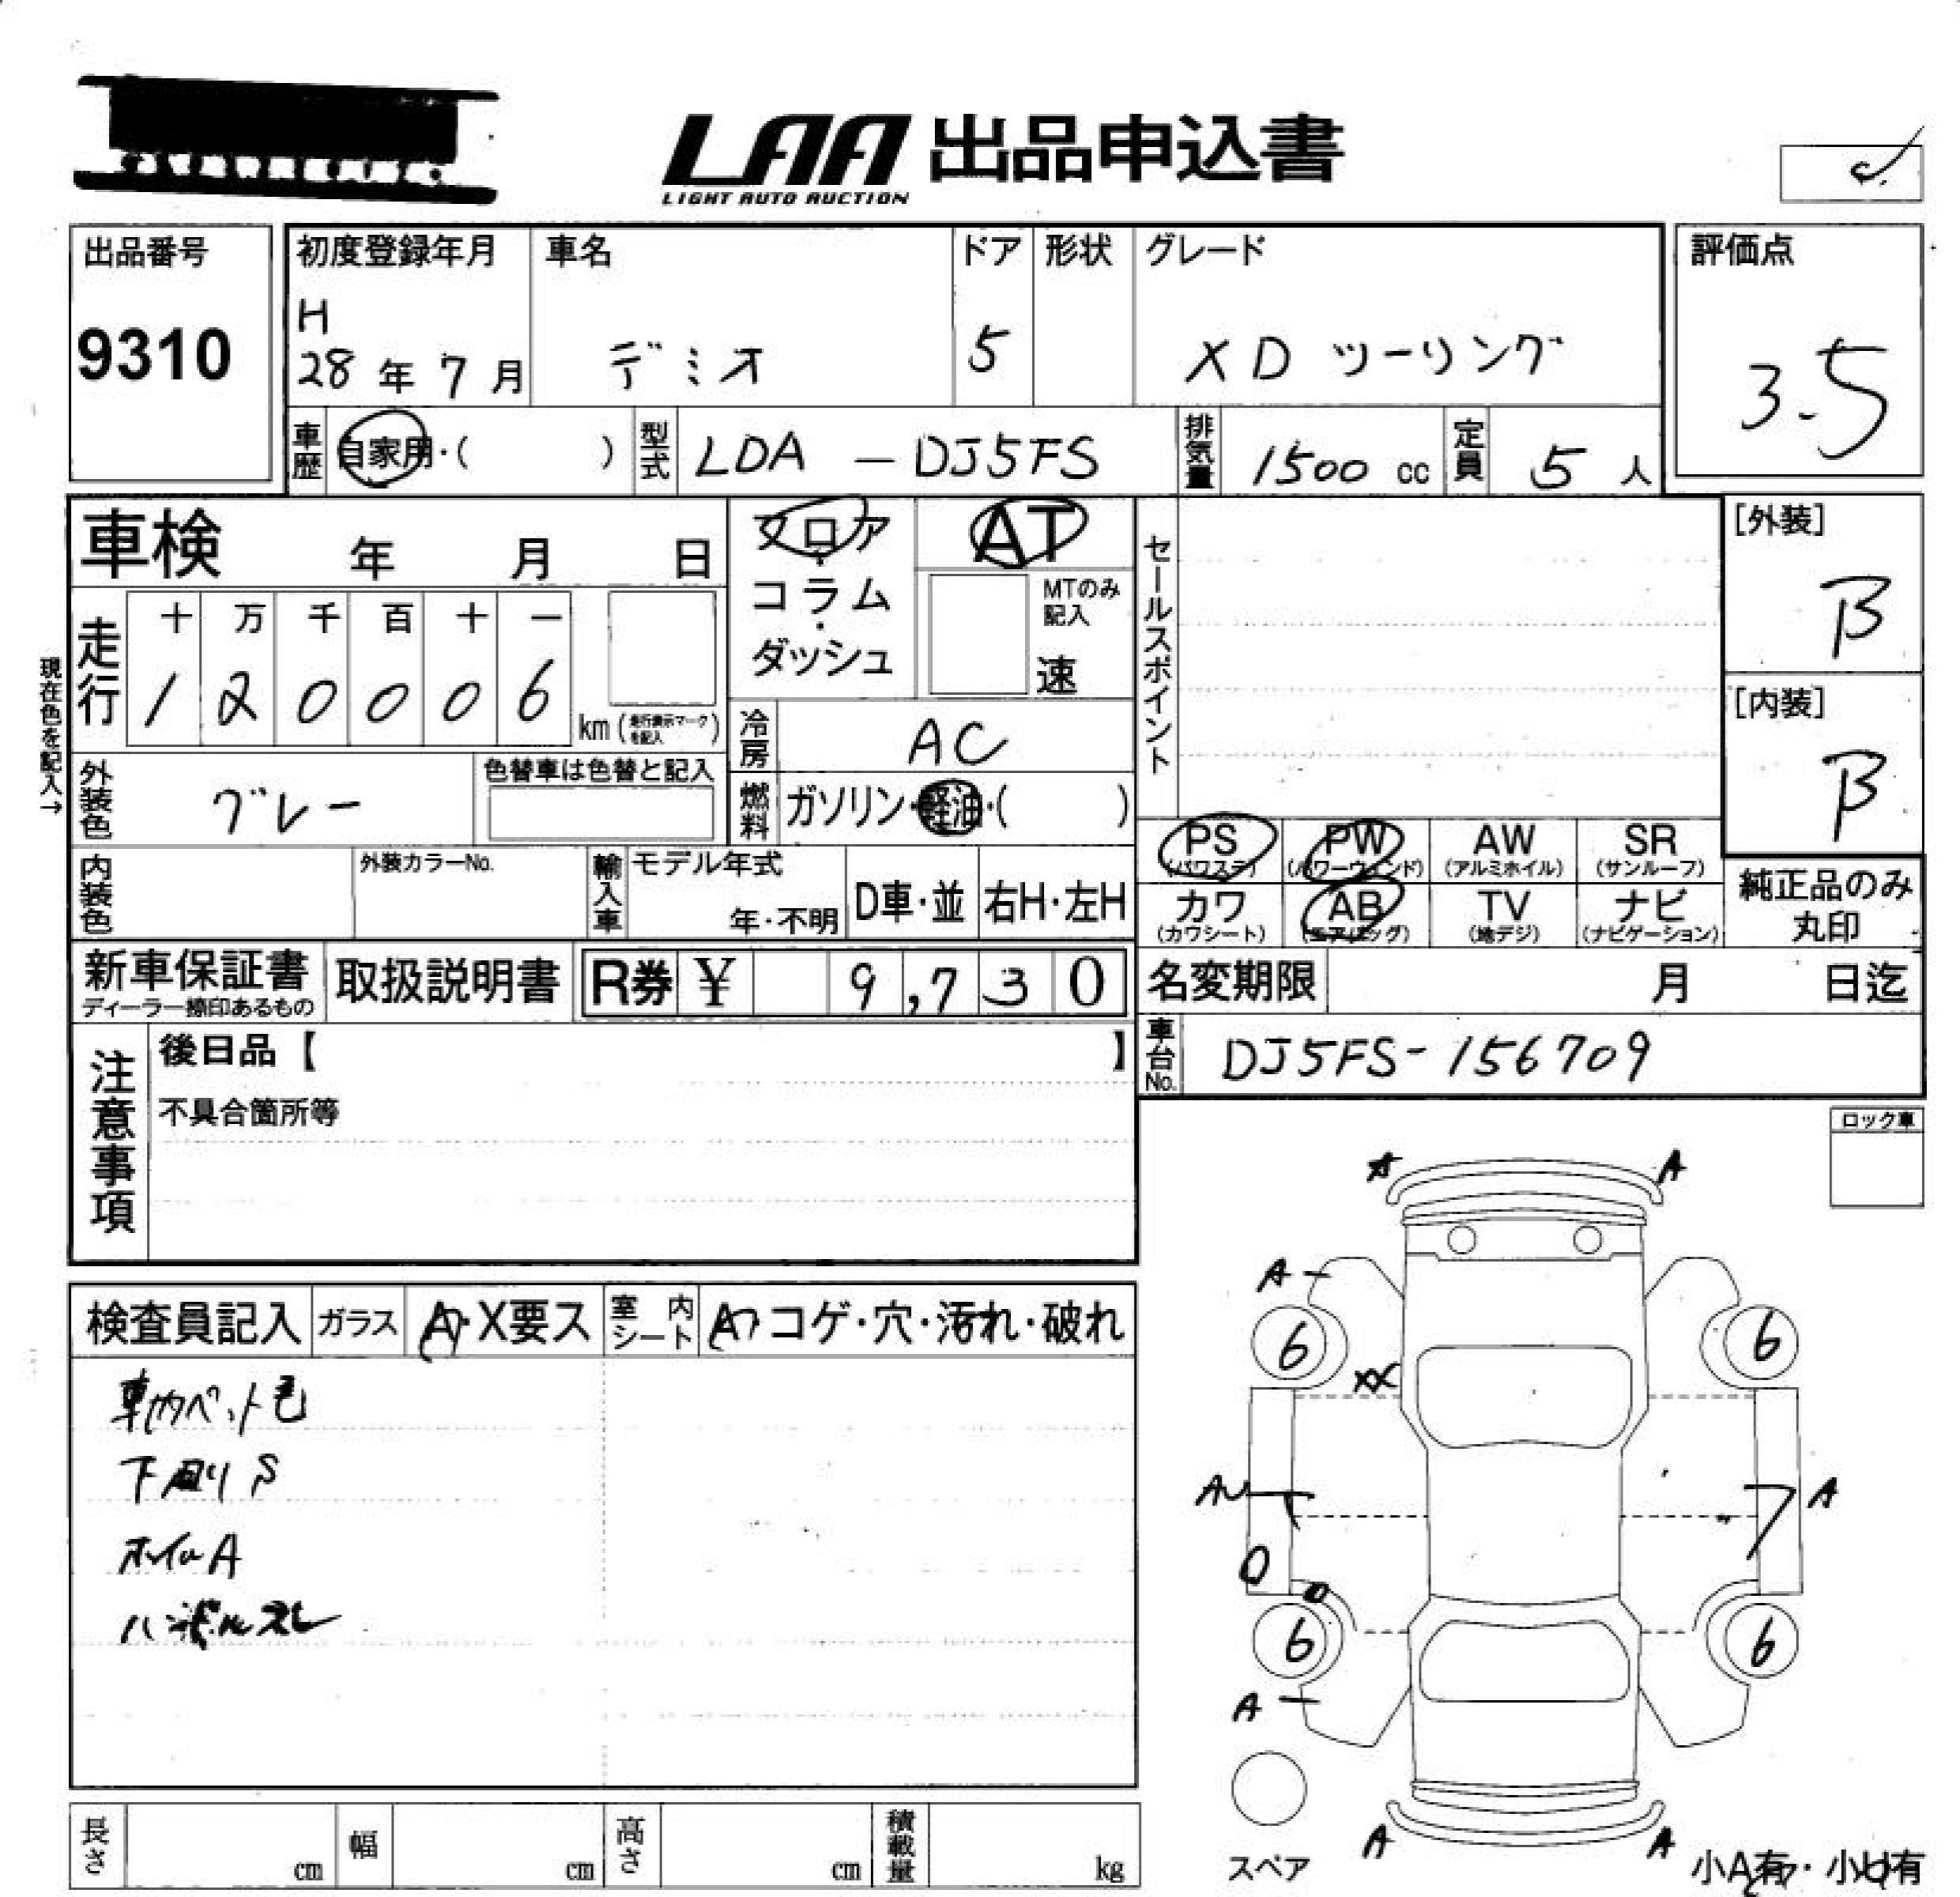 LAA 出品申込書
LIGHT AUTO AUCTION
出品番号
9310
初度登録年月
H
28年7月
車名
デミオ
ドア
5
形状
グレード
XD ツーリング
評価点
3.5
車歴
自家用・( )
型式
LDA - DJ5FS
排気量
1500 cc
定員
5人
車検 年 月 日
フロア・コラム・ダッシュ
AT
MTのみ記入
速
セールスポイント
[外装]
B
[内装]
B
現在色を記入→
走行
十 万 千 百 十 一
1 2 0 0 0 6
km(走行表示マークを記入)
冷房
AC
燃料
ガソリン・軽油・( )
外装色
グレー
色替車は色替と記入
内装色
外装カラーNo.
輸入車
モデル年式
年・不明
D車・並
右H・左H
PS
(パワステ)
PW
(パワーウィンド)
AW
(アルミホイル)
SR
(サンルーフ)
カワ
(カワシート)
AB
(エアバッグ)
TV
(地デジ)
ナビ
(ナビゲーション)
純正品のみ
丸印
新車保証書
ディーラー捺印あるもの
取扱説明書
R券 ¥ 9,730
名変期限 月 日迄
車台No.
DJ5FS-156709
注意事項
後日品【 】
不具合箇所等
ロック車
検査員記入
ガラス
A・X要ス
室内シート
A コゲ・穴・汚れ・破れ
車内ペット毛
下廻りS
ホイルA
ハンドルスレ
A
A
A
6
6
XX
AU
A
6
6
A
A
A
スペア
小A有・小U有
長さ cm
幅 cm
高さ cm
積載量 kg